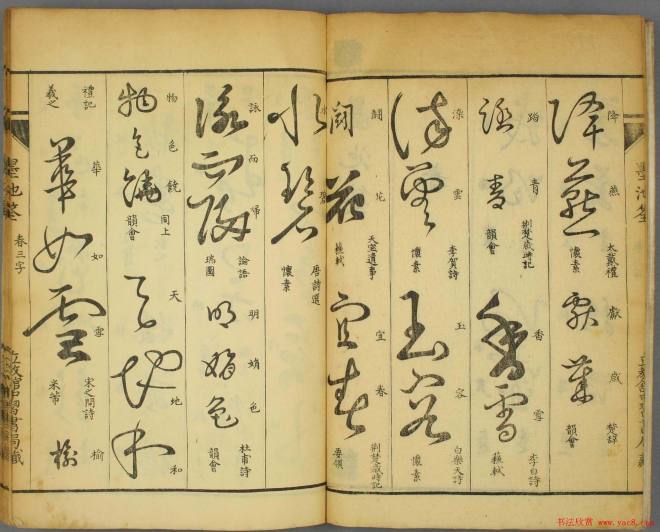 降燕 大戴禮 懷素
獻歲 楚辭 韻會
踏青 荊楚歲時記 韻會
香雪 李白詩 蘇軾
染雲 李賀詩 懷素
玉容 白樂天詩 懷素
鬪花 天寶遺事 蘇軾
宜春 荊楚歲時記
水碧 唐詩選 懷素
詠而歸 論語 瑞圖
明媚色 杜甫詩 韻會
物色饒 同上 韻會
天地和
禮記 羲之
華如雪 宋之問詩 米芾
榆
墨池筌
春三字
墨池筌
书法欣赏
www.yac8.com